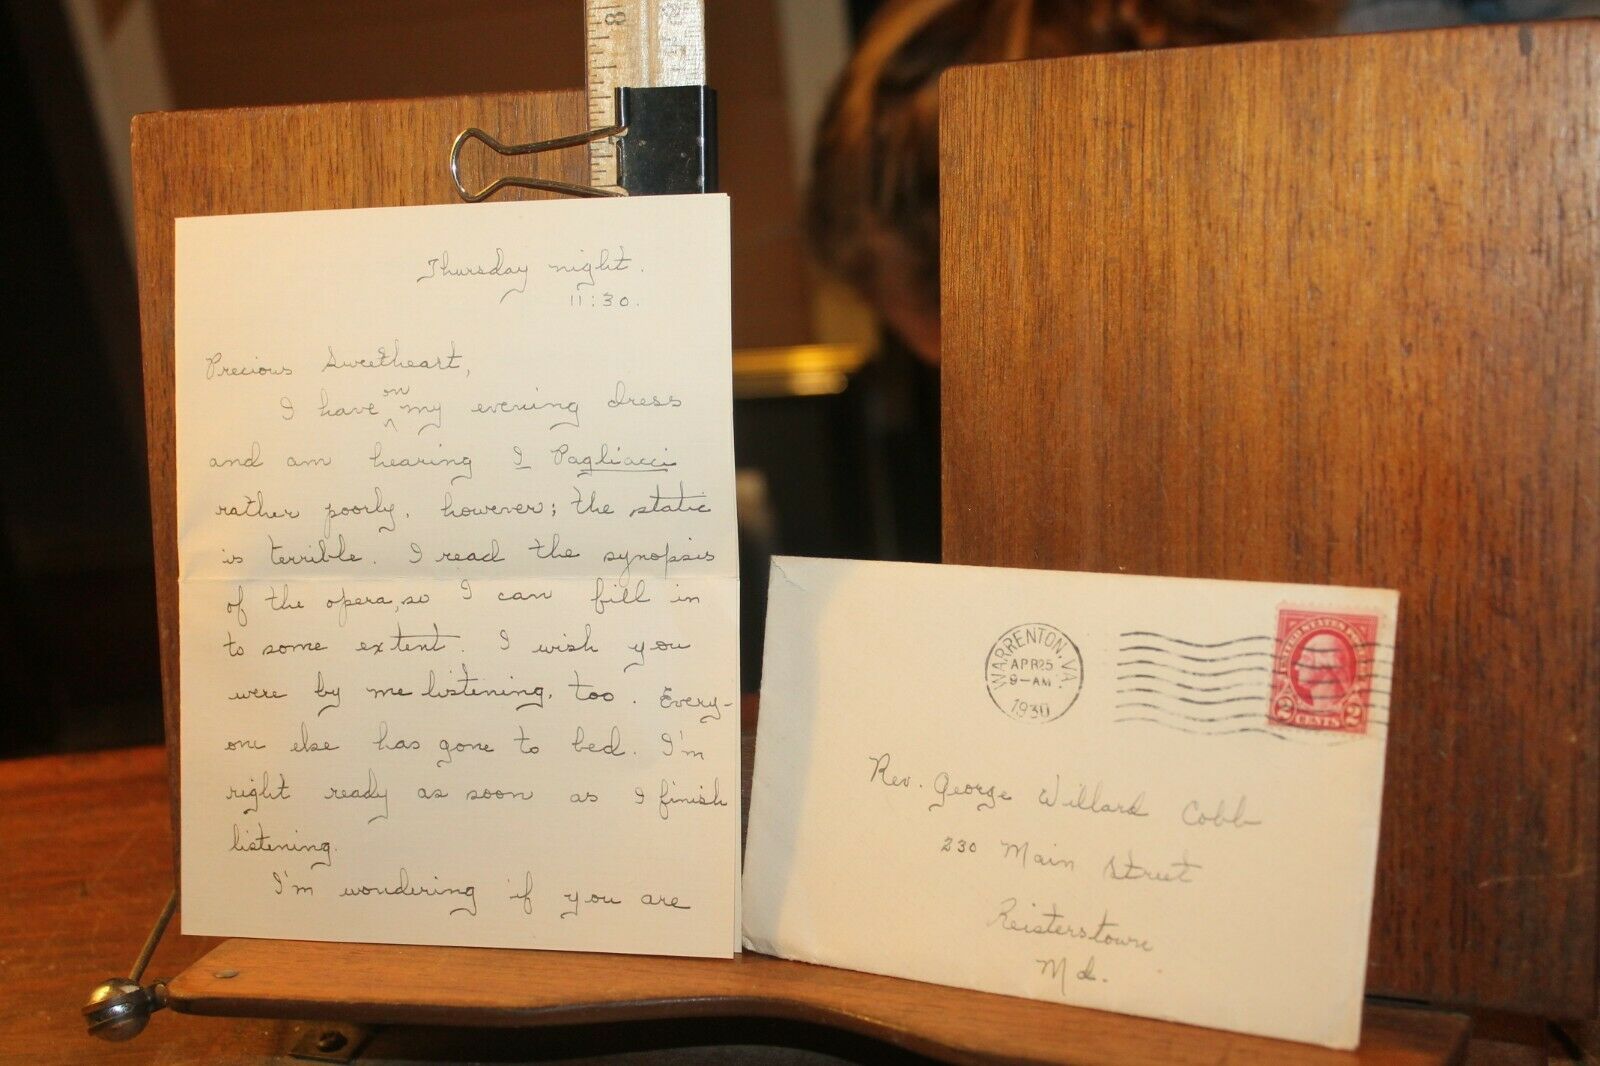 Thursday night.
11:30.
Precious Sweetheart,
I have on my evening dress
and am hearing I Pagliacci
rather poorly, however; the static
is terrible. I read the synopsis
of the opera, so I can fill in
to some extent. I wish you
were by me listening, too. Every-
one else has gone to bed. I'm
right ready as soon as I finish
listening.
I'm wondering if you are
WARRENTON, VA.
APR 25
9-AM
1930
UNITED STATES POSTAGE
2 CENTS 2
Rev. George Willard Cobb
230 Main Street
Reisterstown
Md.
8